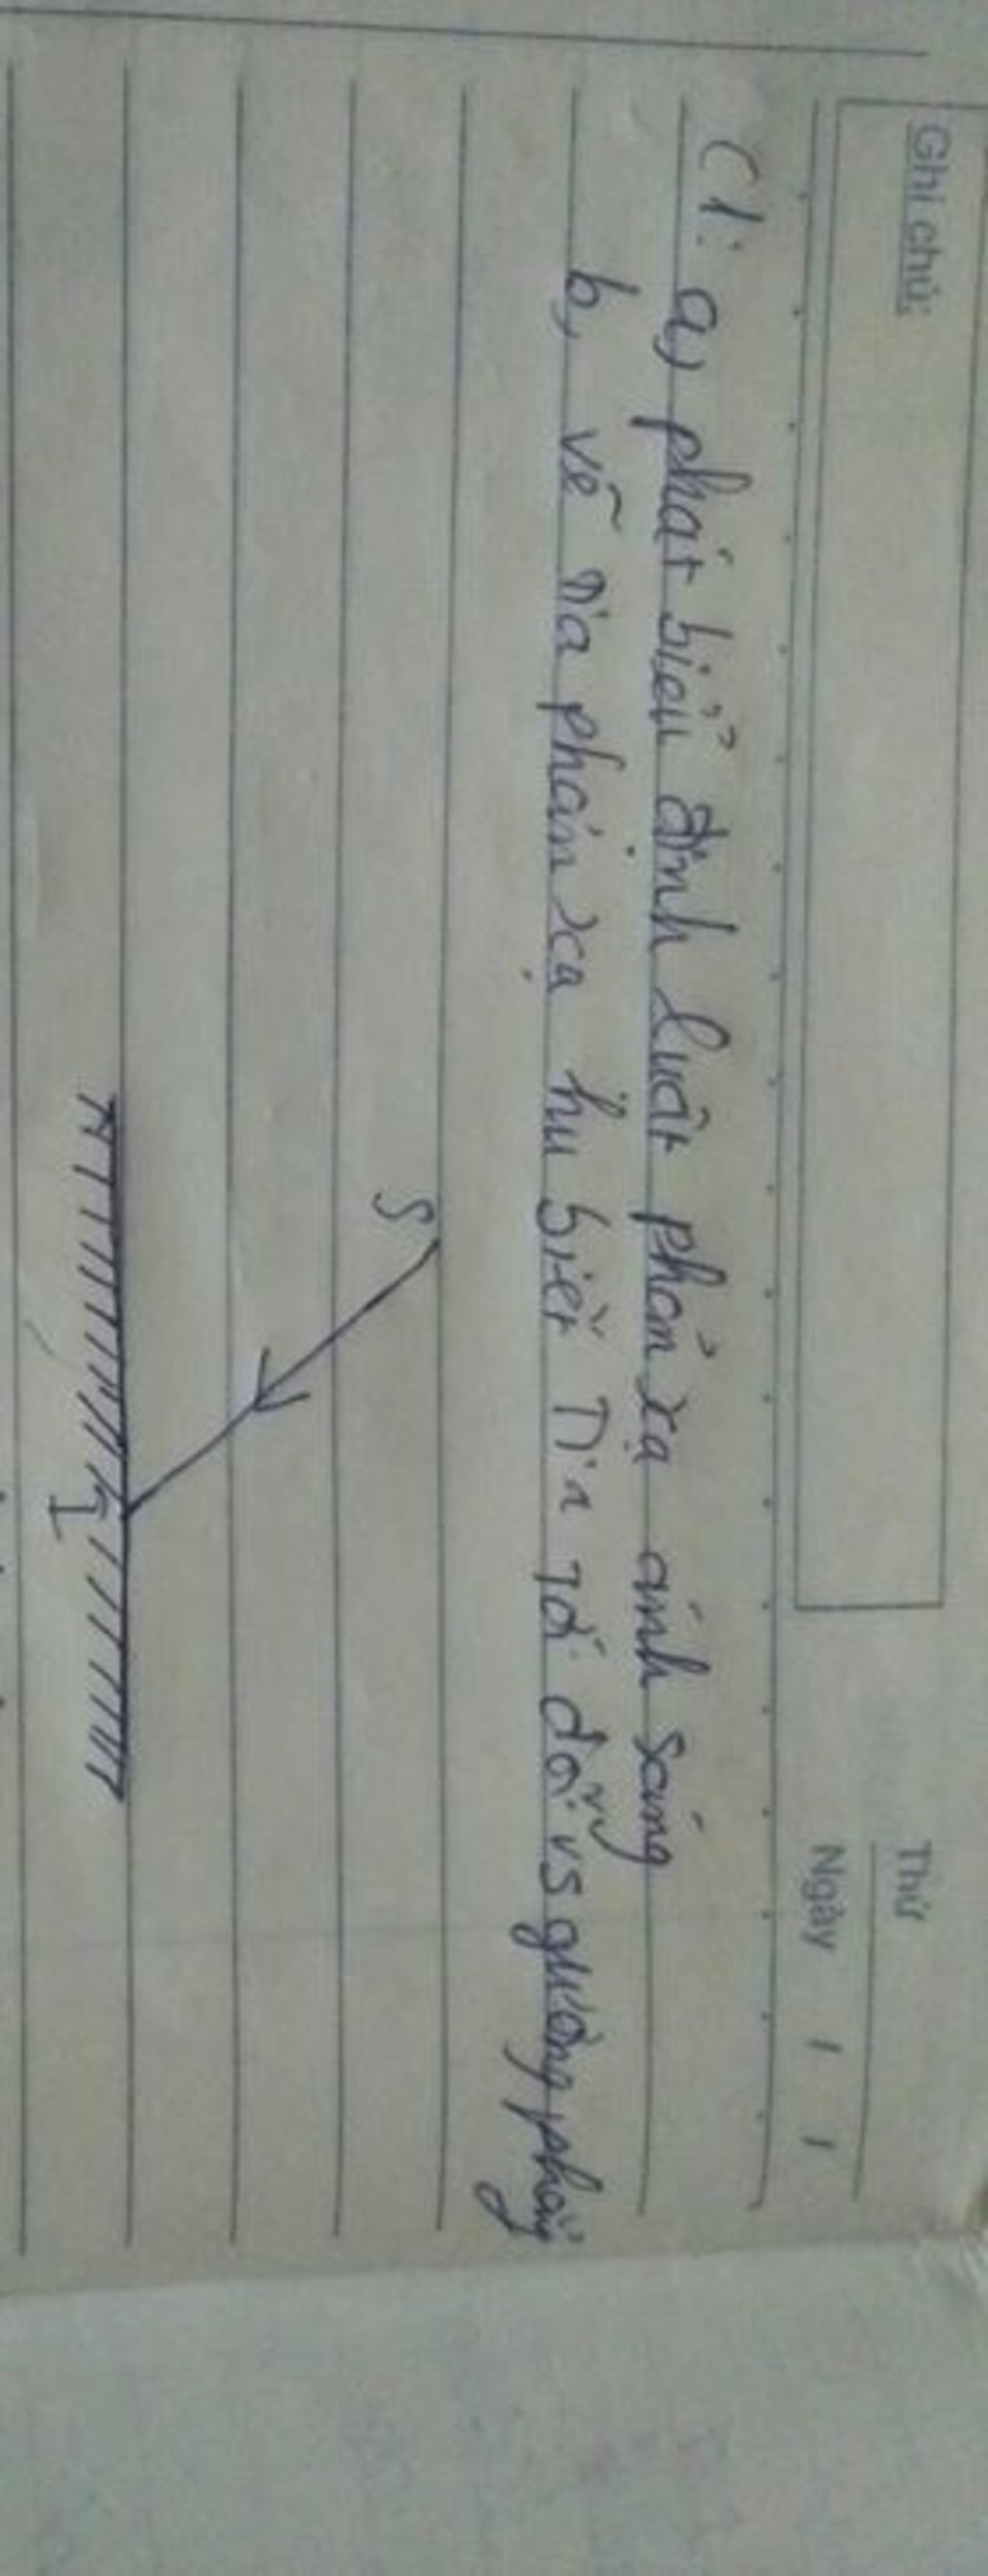 Ghi chú:
Thứ
Ngày / /
C1: a, phát biểu định luật phản xạ ánh sáng
b, vẽ tia phản xạ khi biết tia tới đối vs gương phẳng
S
I